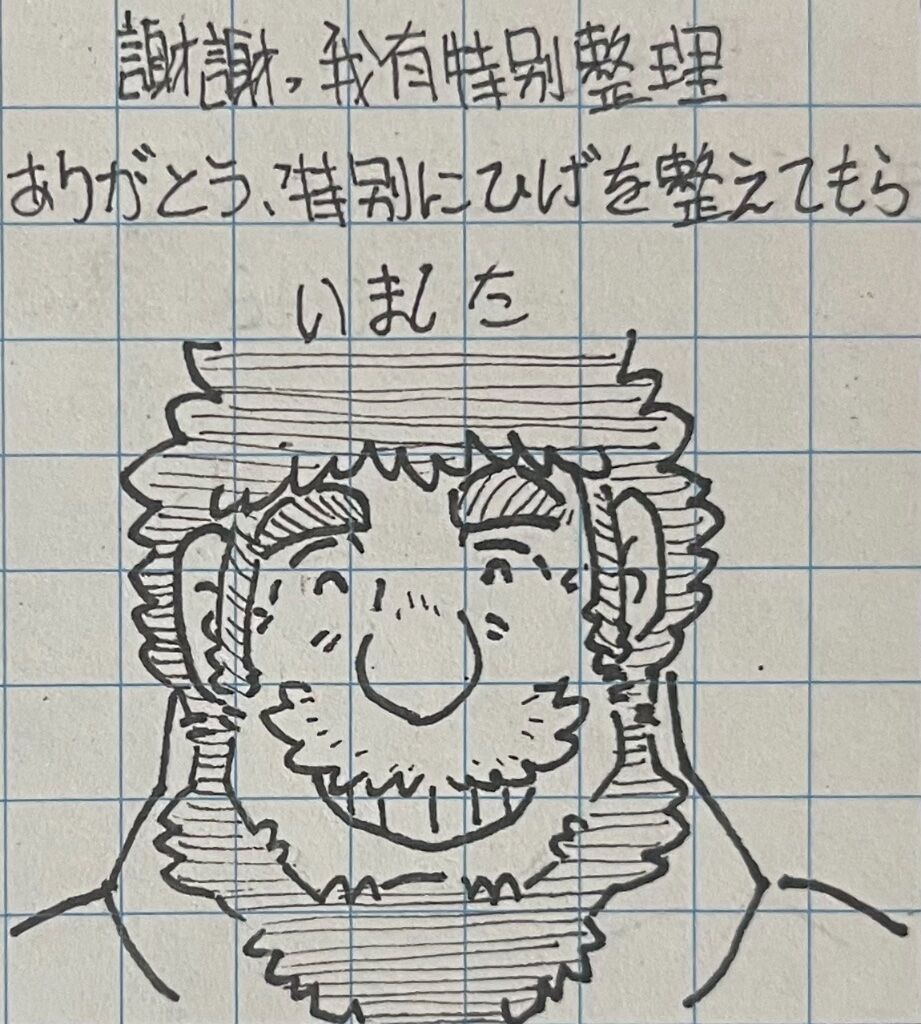 謝謝，我有特别整理
ありがとう、特别にひげを整えてもら
いました